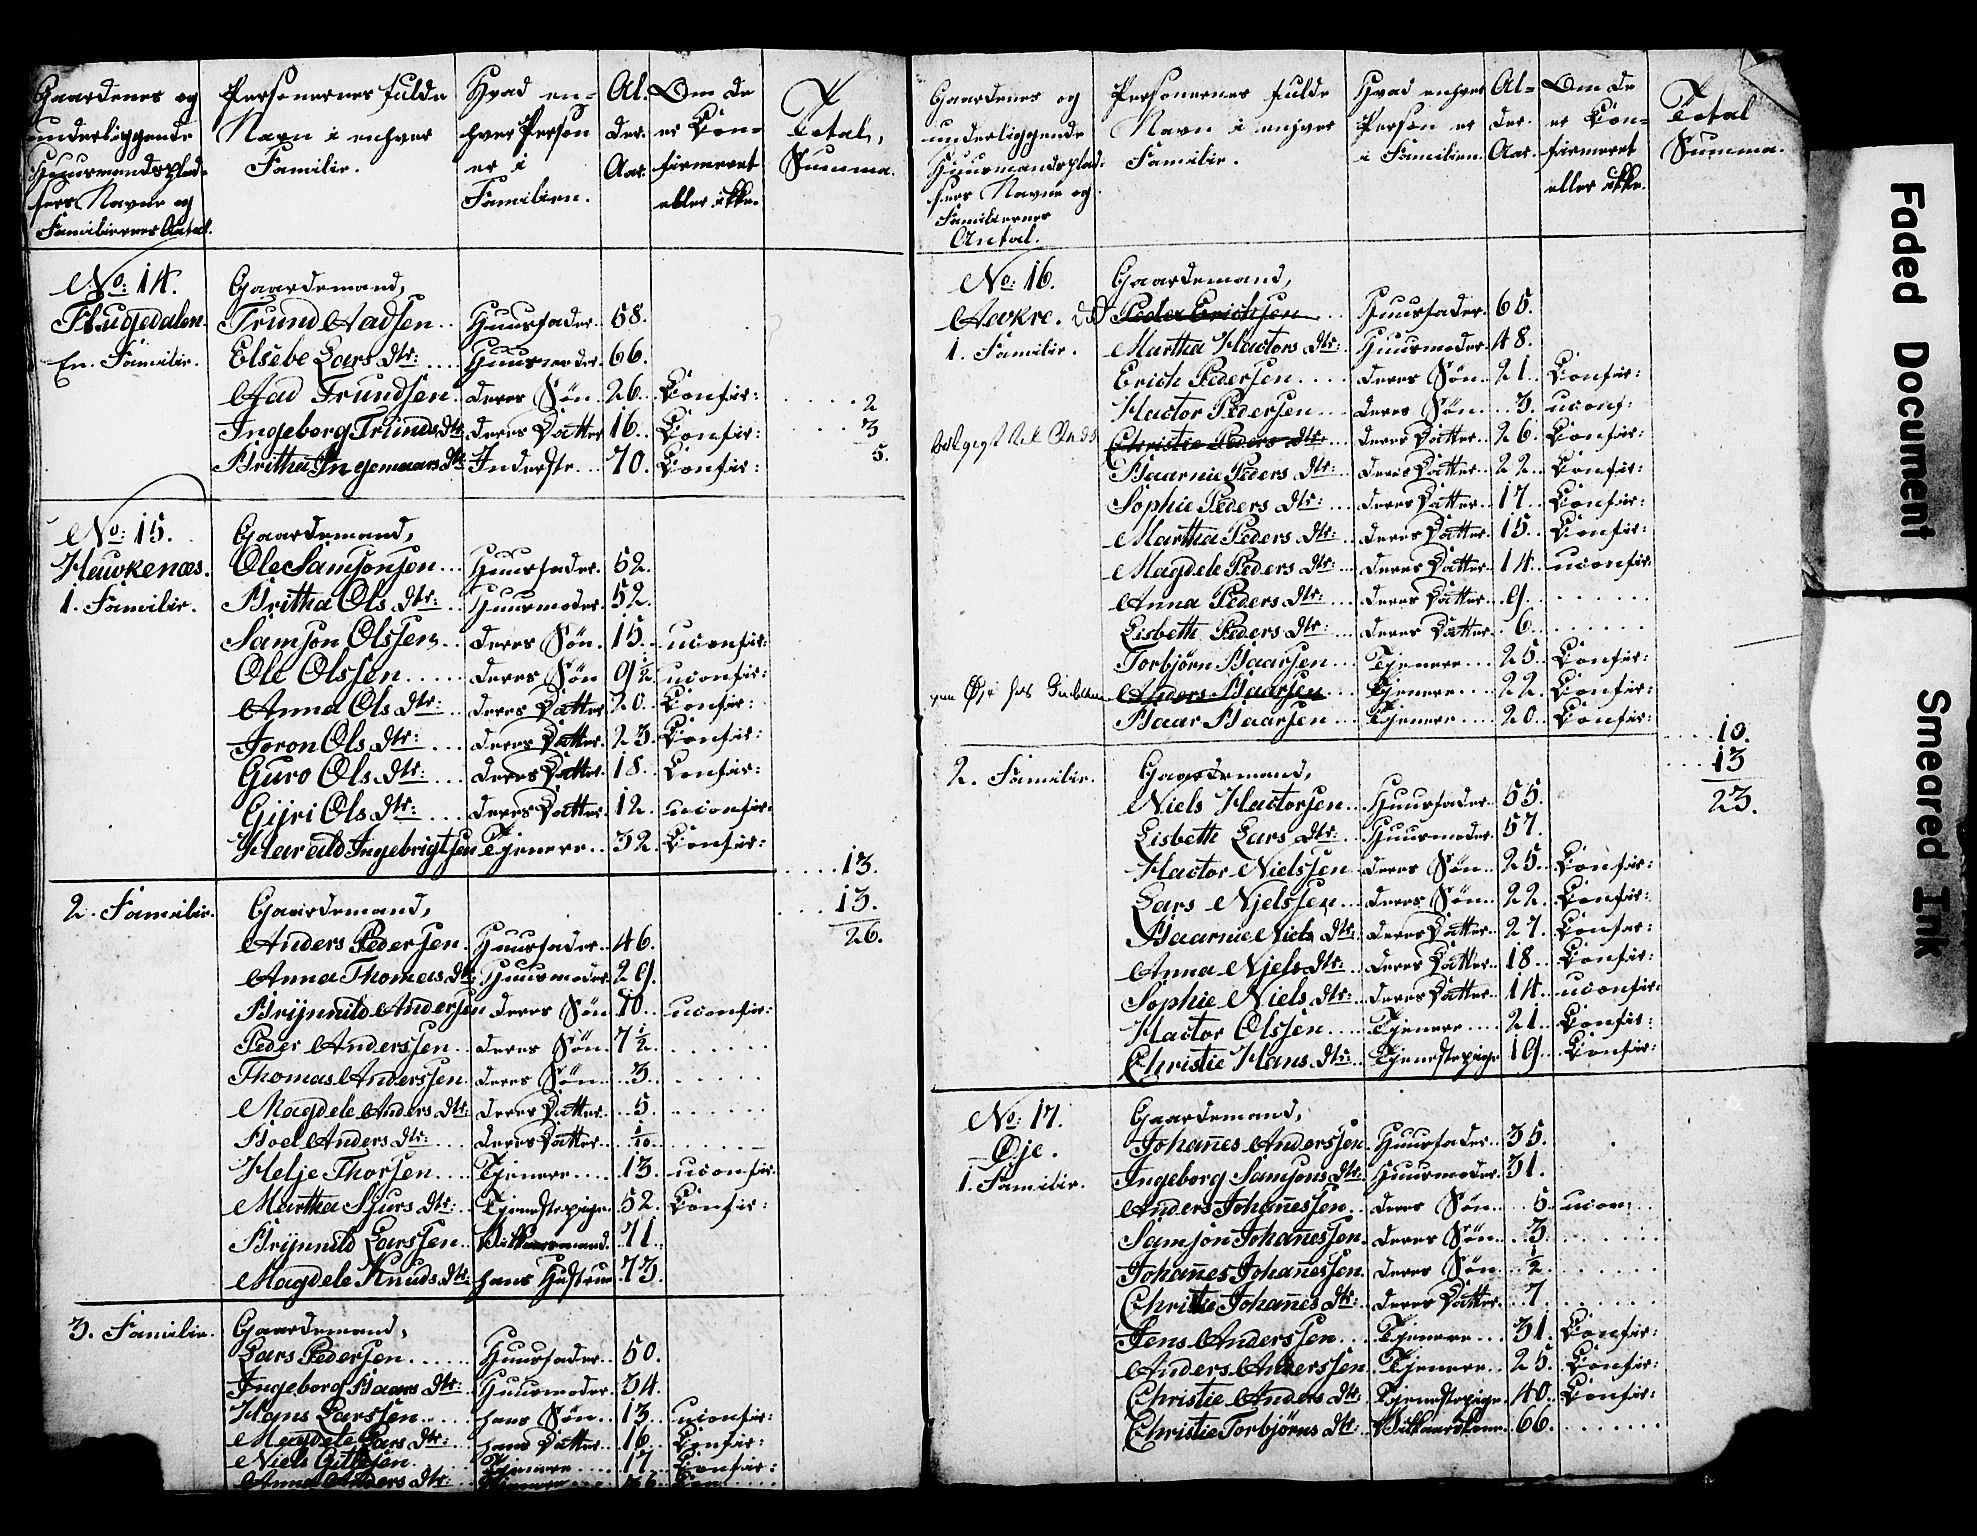 Gaardenes og underliggende Huusmandsplad- sers Navne og Familiernes Antal.
Personernes fulde Navn i enhver Familie.
Hvad en- hver Person er i Familien.
Al- der. Aar.
Om de er Con- firmeret eller ikke.
Total, Summa.
No: 14. Gaardemand,
Flugedalen. Trund Aadsen.. Huusfader. 58.
En Familie. Elsebe Lars Dtr: .... Huusmoder. 66.
Aad Trundsen.. deres Søn. 26. Confir: ..... 2
Ingeborg Trunds Dtr: deres Datter 16. Confir: .... 3
Britha Ingemaars Dtr: Inderste... 70. Confir: 5.
No: 15. Gaardemand,
Haukenæs. Ole Samsonsen... Huusfader. 52.
1. Familie. Britha Ols Dtr: .. Huusmoder. 52.
Samson Olssen.. deres Søn. 15. uconfir:
Ole Olssen..... deres Søn 9½ uconfir:
Anna Ols Dtr: .. deres Datter 20. Confir:
Joron Ols Dtr: ... deres Datter. 23. Confir:
Guro Ols Dtr: ... deres Datter. 18. Confir:
Gijri Ols Dtr: .... deres Datter. 12. uconfir:
Harald Ingebrigtsen Tjenere.. 32. Confir:
..... 13.
2. Familie. Gaardemand, .... 13.
Anders Pedersen. Huusfader.. 46. 26.
Anna Thomas Dtr: Huusmoder. 29.
Brijnnild Andersen deres Søn 10... uconfir:
Peder Anderssen.. deres Søn. 7½. ......
Thomas Anderssen. deres Søn. ..3. ......
Magdele Anders Dtr: deres Datter. ..5. ......
Boel Anders Dtr: ... deres Datter. .. 1/10. ......
Helje Thorsen.... Tjenere.... 13. uconfir:
Martha Sjurs Dtr: .. Tjenestepige 52. Confir:
Brijnnild Larssen.. Vilkaarsmand. 71.
Magdele Knuds Dtr: hans Hustrue 73.
3. Familie. Gaardemand,
Lars Pedersen...... Huusfader.. 50.
Ingeborg Baars Dtr: Huusmoder. 34.
Hans Larssen.... hans Søn.. 13. uconfir:
Magdele Lars Dtr: .. hans Datter.. 16. Confir:
Niels Gittlesen. Tjenere.... 17. Confir:
Anna Anders Dtr:
Gaardenes og underliggende Huusmandsplad- sers Navne og Familiernes Antal.
Personernes fulde Navn i enhver Familie.
Hvad enhver Person er i Familien.
Al- der. Aar.
Om de er Con- firmeret eller ikke.
Total Summa.
No: 16. Gaardemand,
Aevkre. Peder Erichsen.... Huusfader. 65.
1. Familie. Martha Hactors Dtr: Huusmoder. 48.
Erich Pedersen..... deres Søn. 21. Confir:
Hactor Pedersen.... deres Søn. ..3. uconf:
Christie Peders Dtr: .. deres Datter. 26. Confir:
Baarnie Peders Dtr: .. deres Datter. 22. Confir:
Sophie Peders Dtr: ... deres Datter. 17. Confir:
Martha Peders Dtr: ... deres Datter. 15. Confir:
Magdele Peders Dtr: .. deres Datter. 14. uconfir:
Anna Peders Dtr: .... deres Datter. 9. ......
Lisbeth Peders Dtr: ... deres Datter. 6. ......
Torbjörn Baarsen... Tjenere.... 25. Confir:
Anders Baarsen... Tjenere.... 22. Confir:
Baar Baarsen... Tjenere.... 20. Confir:
.... 10.
2. Familie. Gaardemand, .... 13
Niels Hactorsen.. Huusfader. 55. 23.
Lisbeth Lars Dtr: .. Huusmoder. 57.
Hactor Nielssen. deres Søn. 25. Confir:
Lars Njelssen.. deres Søn. 22. Confir:
Baarnie Niels Dtr: deres Datter. 27. Confir:
Anna Njels Dtr: ... deres Datter. 18. Confir:
Sophie Niels Dtr: .. deres Datter. 14. uconfir:
Hactor Olssen..... Tjenere.... 21. Confir:
Christie Hans Dtr: Tjenestepige 19. Confir:
No: 17. Gaardemand,
Øje. Johañes Anderssen. Huusfader.. 35.
1. Familie. Ingeborg Samsons Dtr: Huusmoder. 31.
Anders Johañessen. deres Søn. .. 5. ucon:
Samson Johañessen. deres Søn. .. 3. ......
Johañes Johañessen. deres Søn. .. ½. ......
Christie Johañes Dtr: deres Datter. . 7. ......
Jens Anderssen... Tjenere.... 31. Confir:
Anders Anderssen. Tjenere.. 25. Confir:
Christie Anders Dtr: Tjenestepige. 40. Confir:
Christie Torbjörns Dtr: Vilkaarskone. 66. ......
Faded Document
Smeared Ink